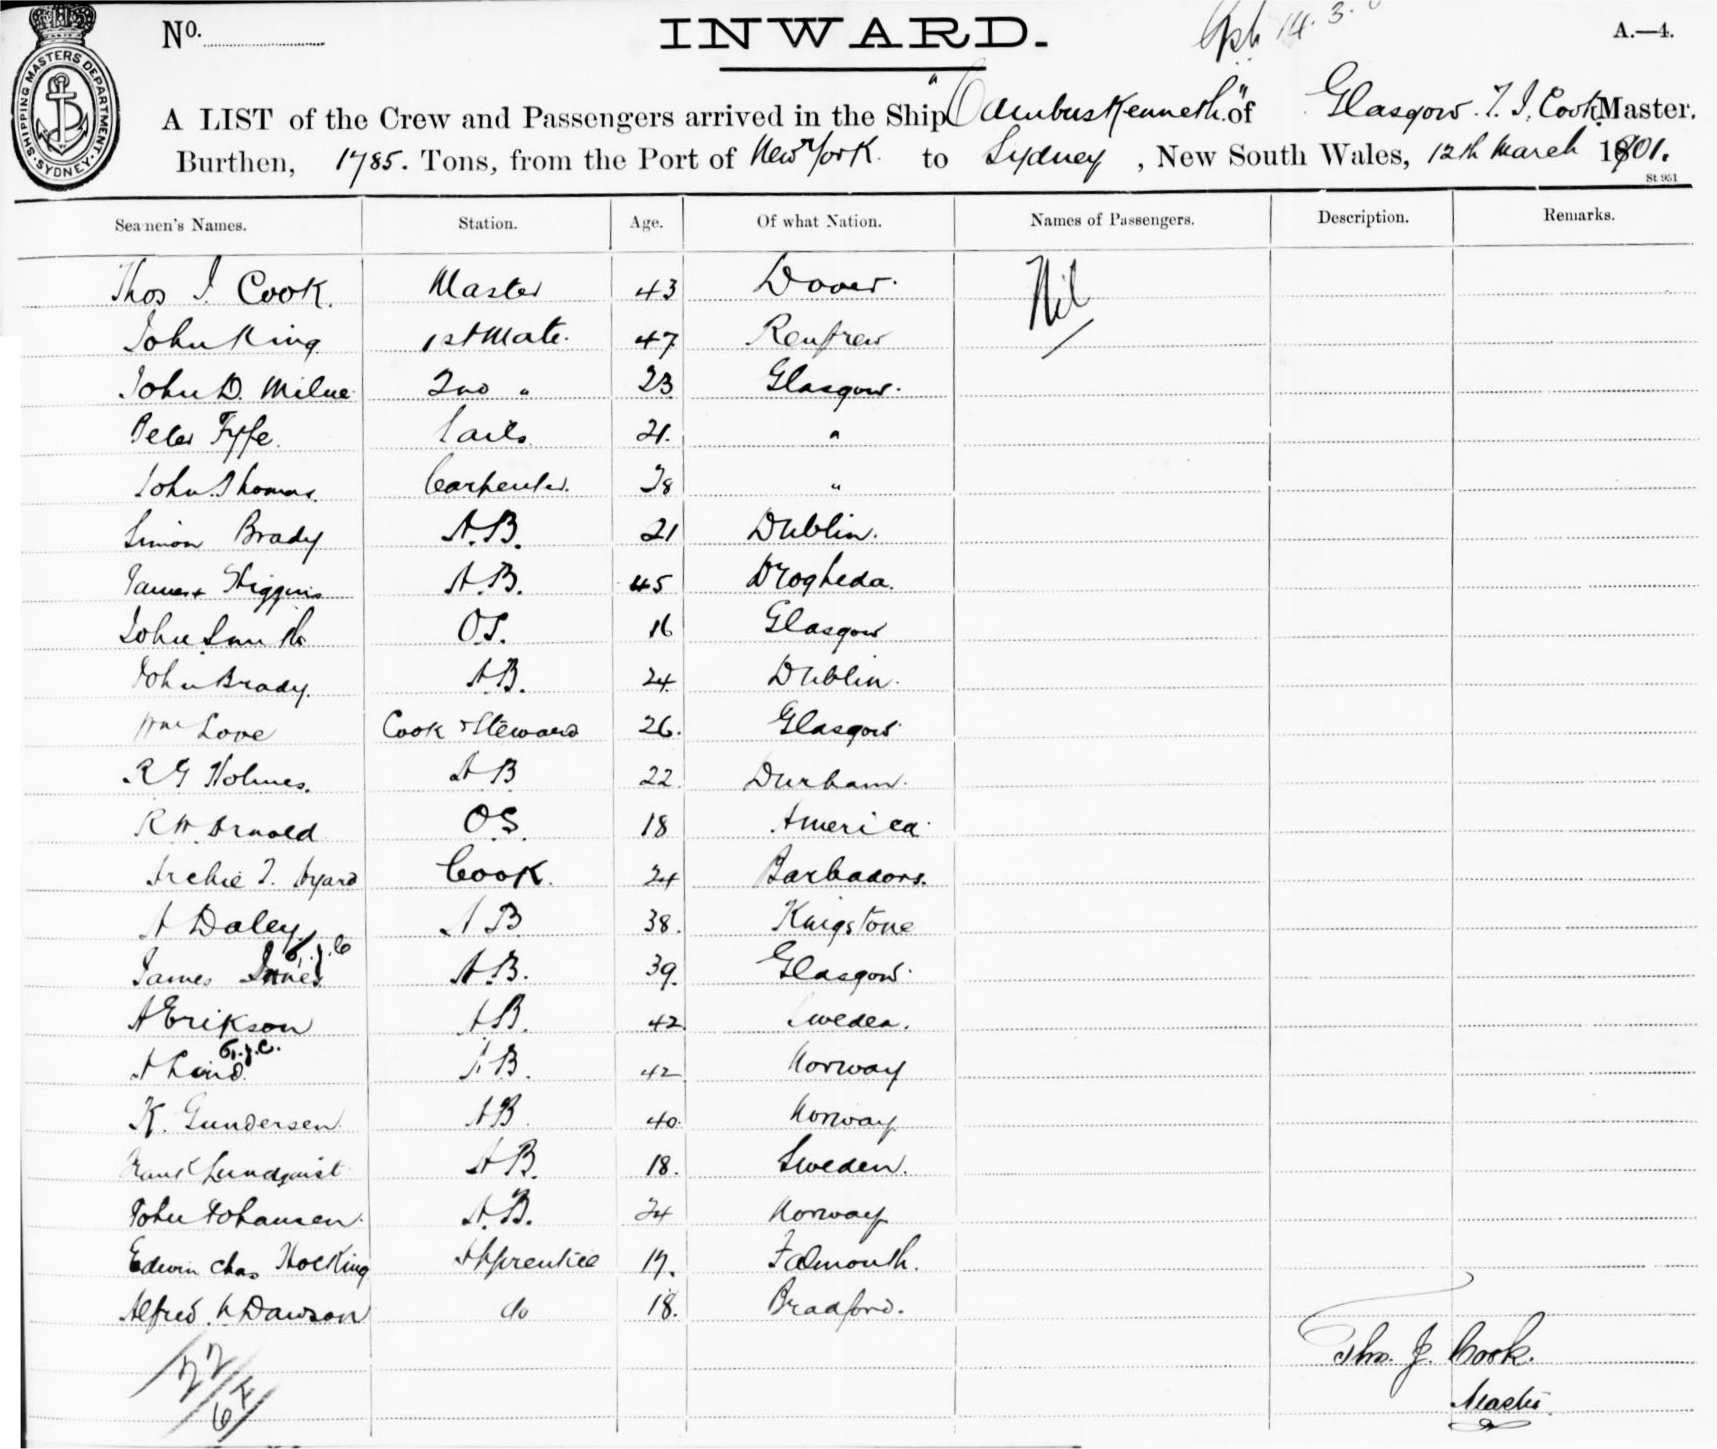 No.
INWARD.
14.3.
A.—4.
SHIPPING MASTERS DEPARTMENT. SYDNEY.
A LIST of the Crew and Passengers arrived in the Ship "Cambuskenneth" of Glasgow. T. J. Cook Master,
Burthen, 1785. Tons, from the Port of New York. to Sydney, New South Wales, 12th March 1901.
St 951
Seamen's Names. Station. Age. Of what Nation. Names of Passengers. Description. Remarks.
Thos J. Cook. Master 43 Dover. Nil
John King 1st Mate. 47 Renfrew
John D. Milne 2nd " 23 Glasgow.
Peter Fyffe. Sails 21. "
John Thomas. Carpenter. 28 "
Simon Brady A.B. 21 Dublin.
James Higgins A.B. 45 Drogheda.
John Smith O.S. 16 Glasgow
John Brady. A.B. 24 Dublin.
Wm Love Cook & Steward 26. Glasgow
R G Holmes. A B 22 Durham.
R W Arnold O.S. 18 America.
Archie T. Hyard Cook. 24 Barbadors.
A Daley A B 38. Kingstone
T.J.C
James Innes A.B. 39. Glasgow
A Erikson A B. 42 Sweden.
T.J.C.
A Lind. A.B. 42 Norway
K. Gundersen A B. 40. Norway
Frank Lundquist A B. 18. Sweden.
John Johansen. A.B. 24 Norway
Edwin Chas Hocking Apprentice 17. Falmouth.
Alfred W Dawson do 18. Bradford.
22
Thos. J. Cook.
Master